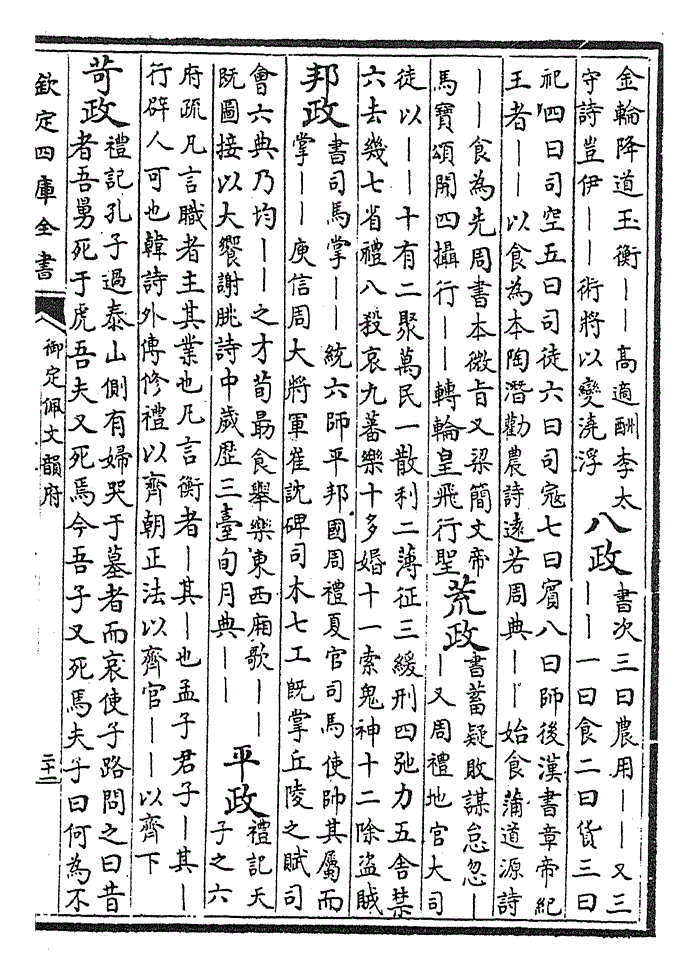 金輪降道玉衡——高適酬李太
守詩豈伊——術將以變澆浮
八政
書次三曰農用——又三
——一曰食二曰貨三曰
祀四曰司空五曰司徒六曰司寇七曰賓八曰師後漢書章帝紀
王者——以食為本陶潛勸農詩遠若周典——始食蒲道源詩
——食為先周書本微旨又梁簡文帝
馬寶頌開四攝行——轉輪皇飛行聖
荒政
書蓄疑敗謀怠忽—
—又周禮地官大司
徒以——十有二聚萬民一散利二薄征三緩刑四弛力五舍禁
六去幾七省禮八殺哀九蕃樂十多婚十一索鬼神十二除盜賊
邦政
書司馬掌——統六師平邦國周禮夏官司馬使帥其屬而
掌——庾信周大將軍崔訦碑司木七工既掌丘陵之賦司
會六典乃均——之才荀勗食舉樂東西廂歌——
既圖接以大饗謝朓詩中歲歷三臺旬月典——
平政
禮記天
子之六
府疏凡言職者主其業也凡言衡者—其—也孟子君子—其—
行辟人可也韓詩外傳修禮以齊朝正法以齊官——以齊下
苛政
禮記孔子過泰山側有婦哭于墓者而哀使子路問之曰昔
者吾舅死于虎吾夫又死焉今吾子又死焉夫子曰何為不
欽定四庫全書
御定佩文韻府